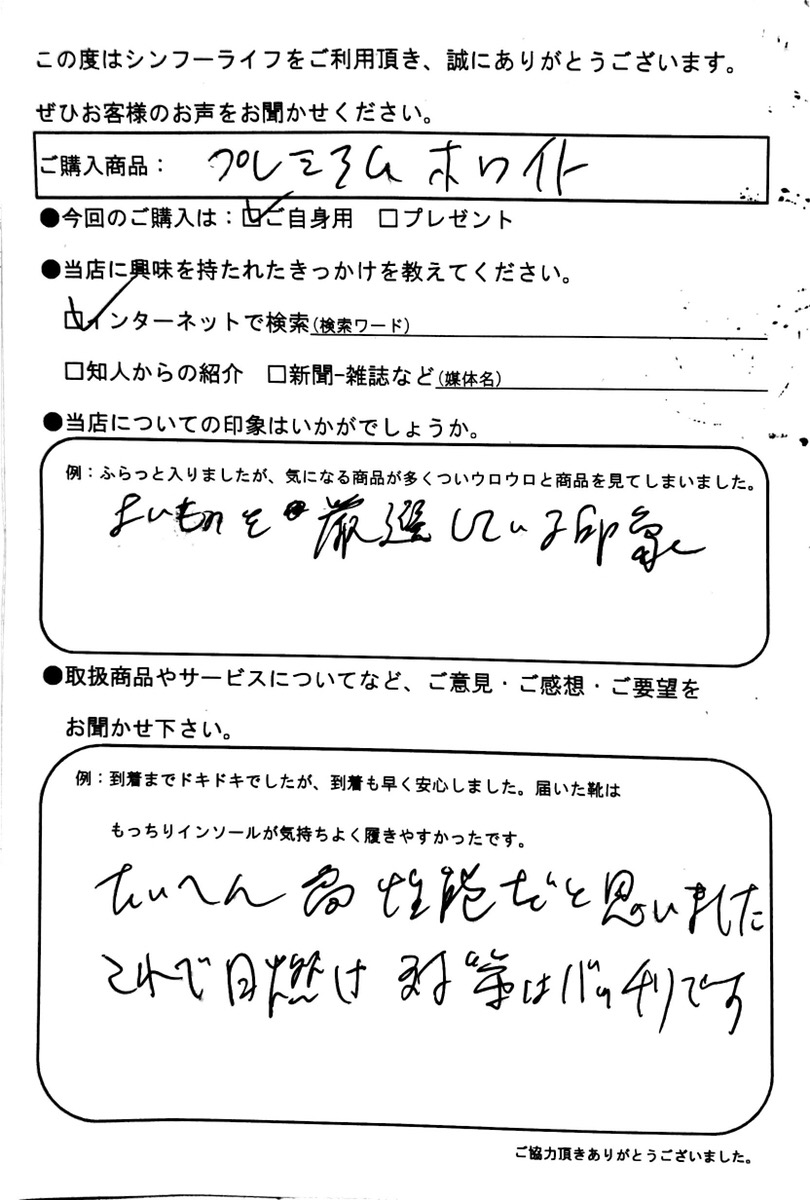 この度はシンフーライフをご利用頂き、誠にありがとうございます。
ぜひお客様のお声をお聞かせください。
ご購入商品： プレミアム ホワイト
●今回のご購入は：☑ご自身用 □プレゼント
●当店に興味を持たれたきっかけを教えてください。
☑インターネットで検索(検索ワード)
□知人からの紹介 □新聞-雑誌など(媒体名)
●当店についての印象はいかがでしょうか。
例：ふらっと入りましたが、気になる商品が多くついウロウロと商品を見てしまいました。
よいものを 厳選している印象
●取扱商品やサービスについてなど、ご意見・ご感想・ご要望を
お聞かせ下さい。
例：到着までドキドキでしたが、到着も早く安心しました。届いた靴は
もっちりインソールが気持ちよく履きやすかったです。
たいへん高性能だと思いました
これで日燃け対策はバッチリです
ご協力頂きありがとうございました。